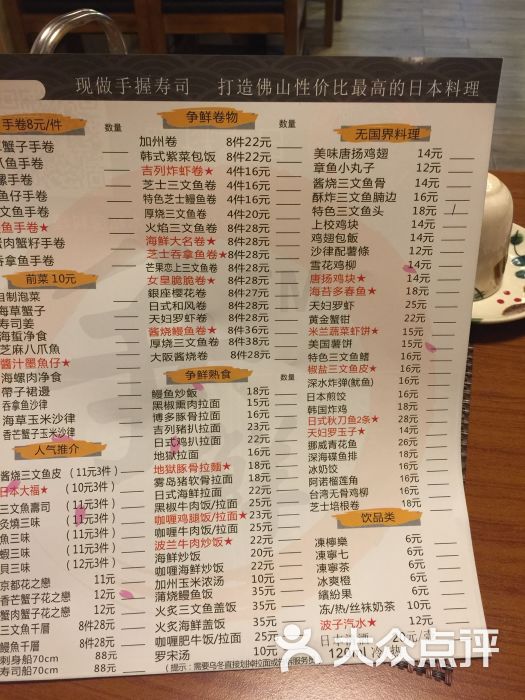 现做手握寿司 打造佛山性价比最高的日本料理
手卷8元/件 数量
蟹子手卷
爪鱼手卷
螺手卷
鱼仔手卷
文鱼手卷
鱼手卷★
蟹肉蟹籽手卷
吞拿鱼手卷
前菜 10元
自制泡菜
海草蟹子
寿司姜
海蜇净食
芝麻八爪鱼
醬汁墨魚仔★
海螺肉净食
帶子裙邊
吞拿鱼沙律
海草玉米沙律
香芒蟹子玉米沙律
人气推介
酱烧三文鱼皮 (11元3件)
日本大福★ (10元3件)
三文魚壽司 (11元3件)
炙燒三味 (11元3件)
三味 (11元3件)
蝦三味 (11元3件)
貝三味 (12元3件)
京都花之戀 11元
香芒蟹子花之戀 12元
蟹肉蟹子花之戀 12元
三文魚千層 8件28元
鳗鱼千層 8件28元
刺身船70cm 88元
寿司船70cm 88元
争鲜卷物 数量
加州卷 8件22元
韩式紫菜包饭 8件22元
吉列炸虾卷★ 4件16元
芝士三文鱼卷 4件16元
特色芝士鳗鱼卷 4件16元
厚烧三文鱼卷 4件16元
火焰三文鱼卷 8件22元
海鲜大名卷★ 8件28元
芝士吞拿鱼卷★ 8件28元
芒果恋上三文鱼卷 8件28元
女皇脆脆卷★ 8件28元
銀座樱花卷 8件28元
日式和风卷 8件28元
天妇罗虾卷 8件28元
酱烧鳗鱼卷★ 8件36元
厚烧三文鱼卷 8件38元
大阪酱烧卷 8件28元
争鲜熟食 数量
鳗鱼炒飯 18元
黑椒熏肉拉面 15元
博多豚骨拉面 16元
吉列猪扒拉面 16元
日式鸡扒拉面 22元
地狱拉面 16元
地獄豚骨拉麵★ 18元
雾岛猪软骨拉面 18元
日式海鲜拉面 22元
黑椒牛肉饭/拉面 22元
咖喱鸡腿饭/拉面★ 23元
咖喱牛肉饭/拉面 22元
波兰牛肉炒饭★ 22元
海鲜炒饭 20元
加州玉米浓汤 10元
蒲烧鳗鱼饭 25元
火炙三文鱼盖饭 25元
火炙海鲜盖饭 25元
咖喱肥牛饭/拉面 25元
罗宋汤 10元
无国界料理 数量
美味唐扬鸡翅 14元
章鱼小丸子 12元
酱烧三文鱼骨 14元
酥炸三文鱼腩边 16元
特色三文鱼头 18元
上校鸡块 14元
鸡翅包飯 14元
沙律配薯條 12元
雪花鸡柳 14元
唐扬鸡块★ 14元
海苔多春鱼★ 18元
天妇罗虾 25元
黄金蟹钳 22元
米兰蔬菜虾饼★ 15元
美国薯饼 15元
特色三文鱼鳍 16元
椒盐三文鱼皮★ 16元
深水炸弹(鱿鱼) 16元
日本煎饺 16元
韩国炸鸡 18元
日式秋刀鱼2条★ 28元
天妇罗玉子★ 14元
挪威青花鱼 26元
深海碟鱼排 18元
冰奶饺 16元
阿诺榴莲角 16元
台湾无骨鸡柳 16元
芝士培根卷 18元
饮品类
凍檸樂 6元
凍寧七 6元
凍寧茶 6元
冰爽橙 6元
繽紛果 6元
冻/热/丝袜奶茶 10元
波子汽水★ 12元
(提示：需要乌冬直接划掉拉面或
大众点评